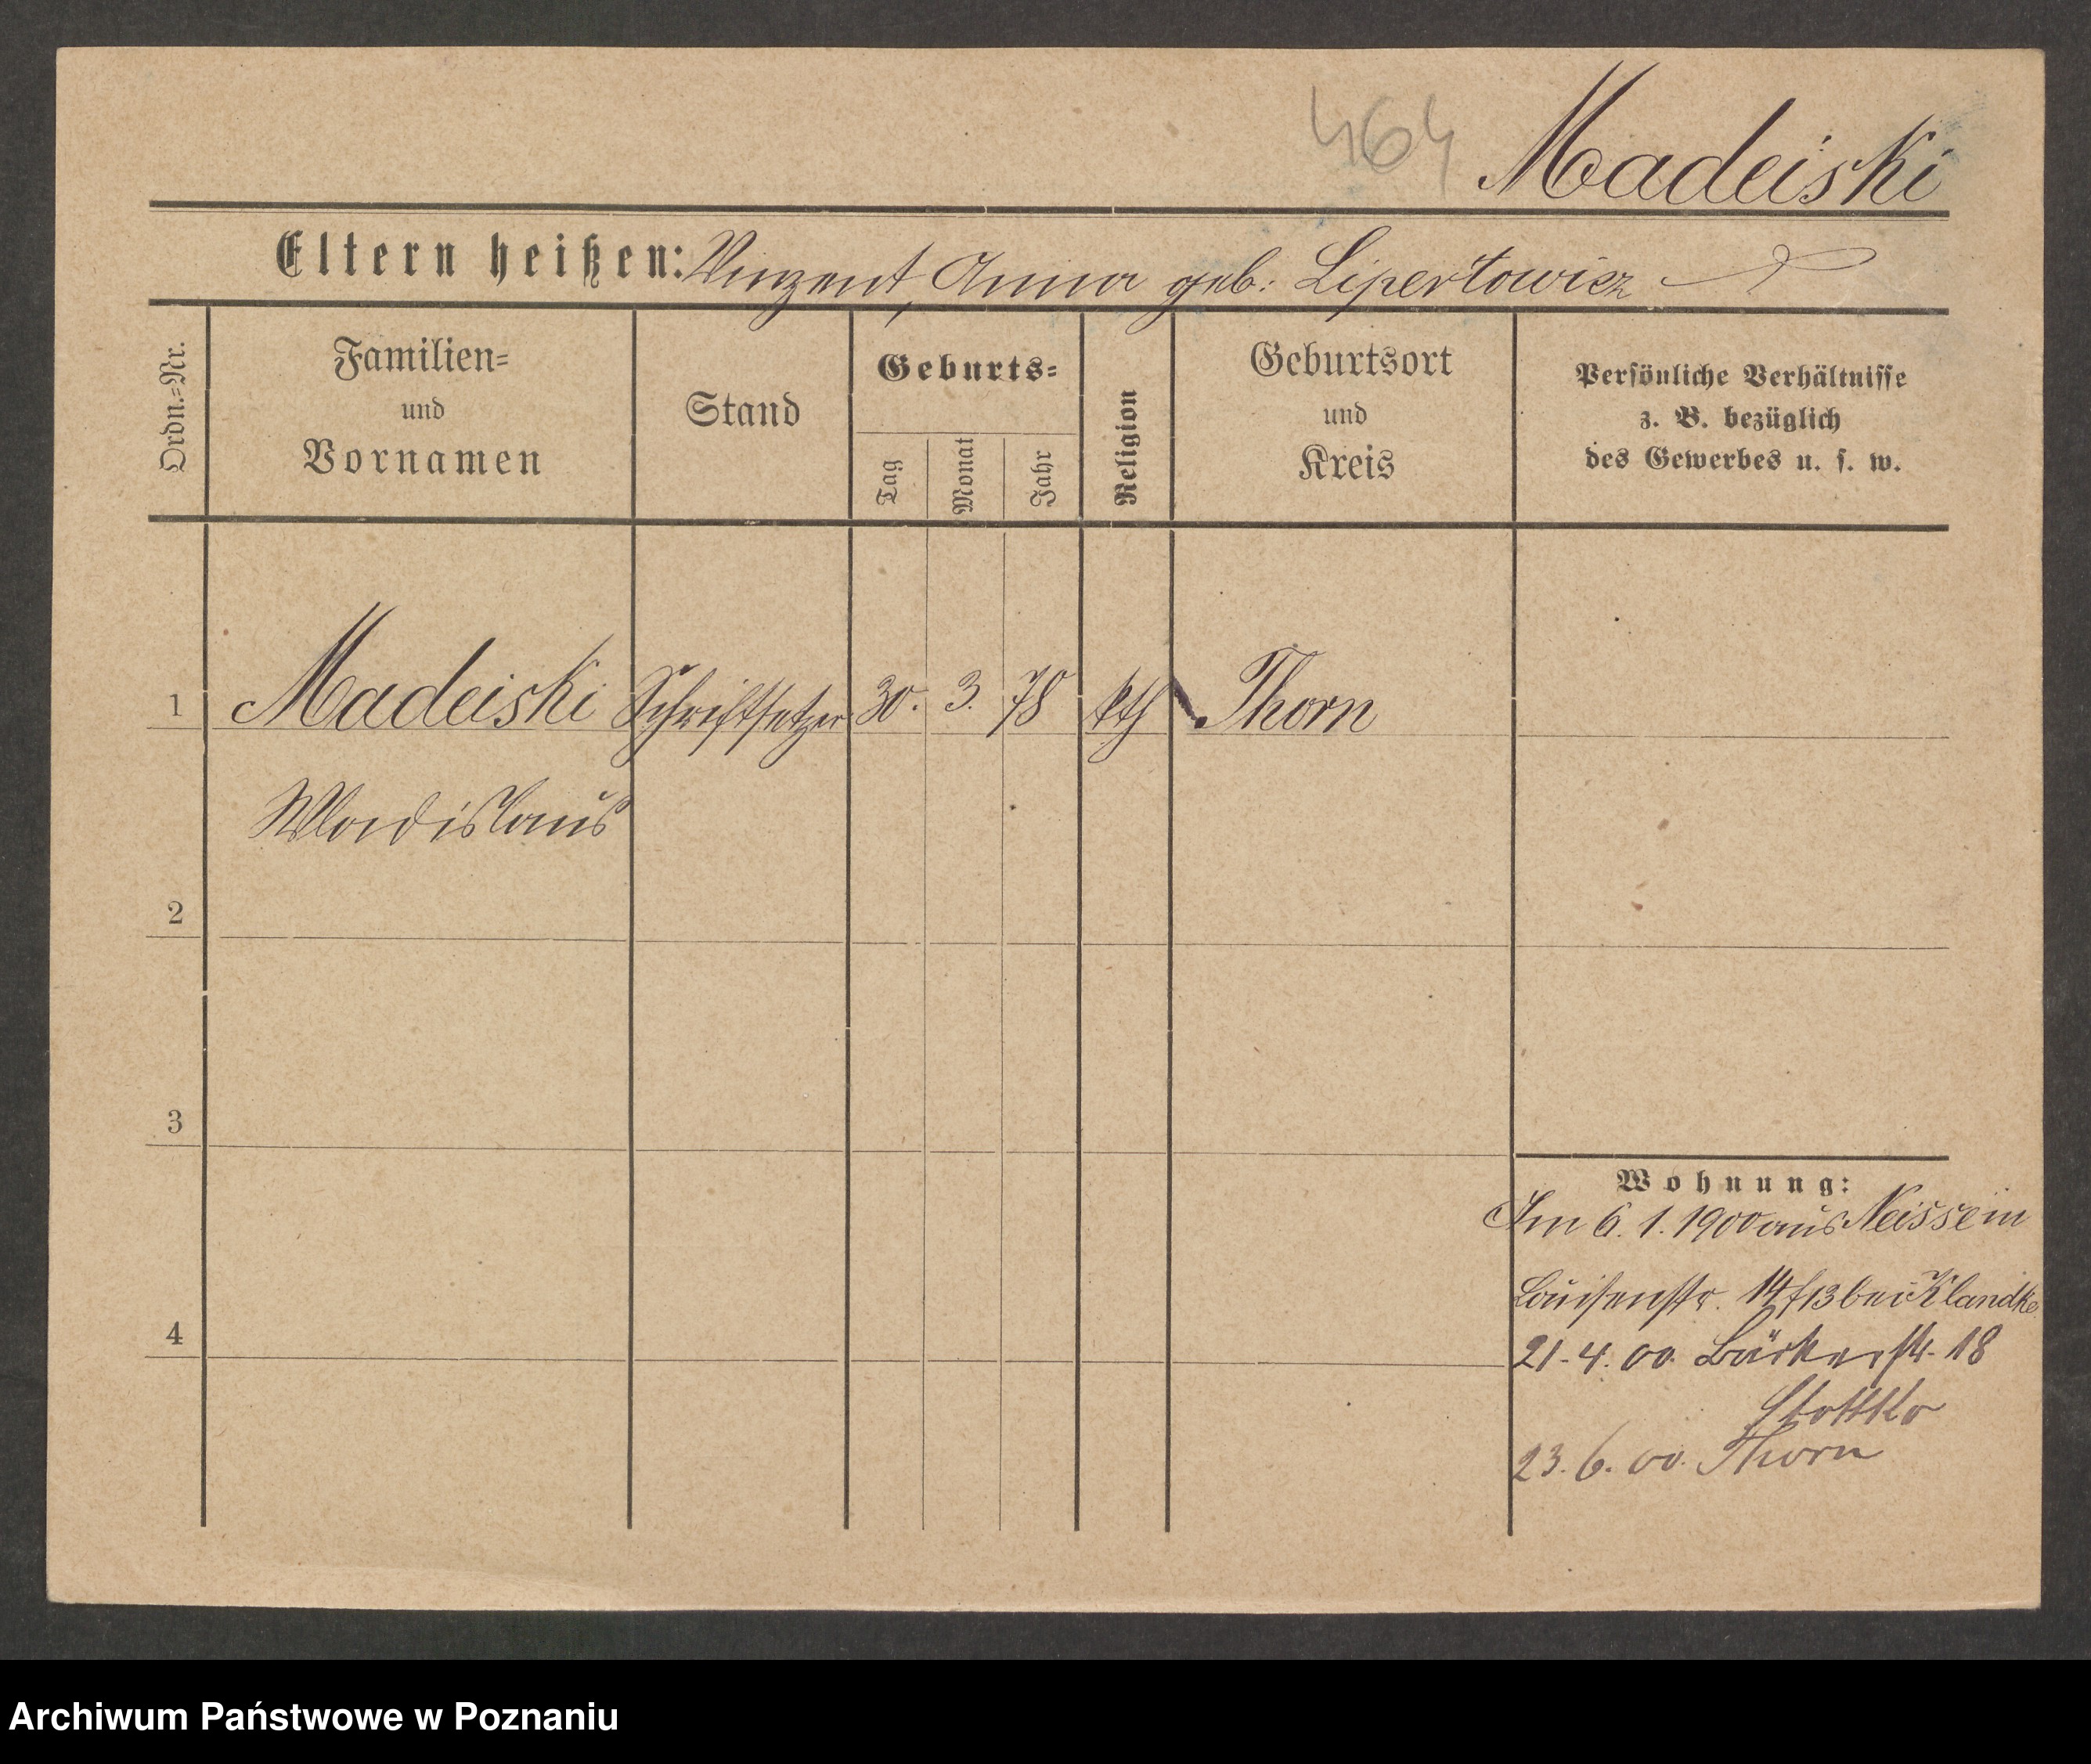 464 Madeiski
Eltern heißen: Vinzent, Anna geb: Lipertowicz
Ordn.=Nr.
Familien=
und
Vornamen
Stand
Geburts=
Tag
Monat
Jahr
Religion
Geburtsort
und
Kreis
Persönliche Verhältnisse
z. B. bezüglich
des Gewerbes u. s. w.
1 Madeiski Schriftsetzer 30. 3. 78 kth Thorn
Wladislaus
2
3
4
Wohnung:
Am 6. 1. 1900 aus Neisse in
Louisenstr. bei Klandke
21-4. 00. Bäckerstr. 18
23. 6. 00. Thorn
Archiwum Państwowe w Poznaniu